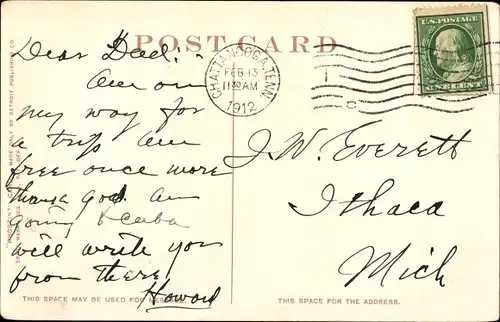 POST CARD
Dear Dad:-
Am on
my way for
a trip am
free once more
thank god am
going Cuba
will write you
from there
Howard
THIS SPACE MAY BE USED FOR MESSAGE.
CHATTANOOGA, TENN.
FEB 13
11 30 AM
1912
U.S. POSTAGE
ONE CENT
J. W. Everett
Ithaca
Mich
THIS SPACE FOR THE ADDRESS.
MADE ONLY BY DETROIT PUBLISHING CO.